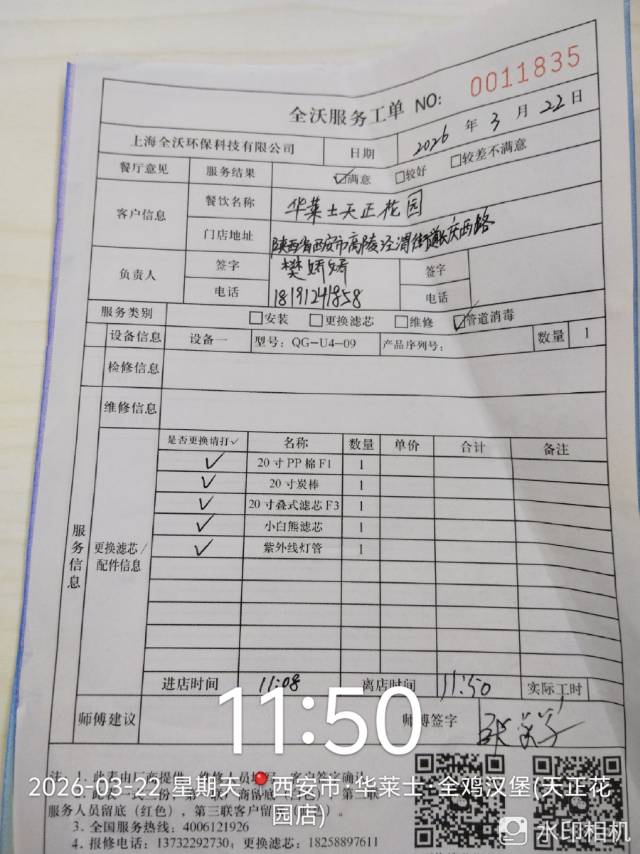 全沃服务工单 NO: 0011835
上海全沃环保科技有限公司 日期 2026 年 3 月 22 日
餐厅意见 服务结果 ☑满意 □较好 □较差不满意
客户信息 餐饮名称 华莱士天正花园
门店地址 陕西省西安市高陵泾渭街道长庆西路
负责人 签字 樊娇娇 签字
电话 18191241858 电话
服务类别 □安装 □更换滤芯 □维修 ☑管道消毒
设备信息 设备一 型号: QG-U4-09 产品序列号: 数量 1
检修信息
维修信息
服务信息
更换滤芯/配件信息
是否更换请打✓ 名称 数量 单价 合计 备注
✓ 20寸PP棉F1 1
✓ 20寸炭棒 1
✓ 20寸叠式滤芯F3 1
✓ 小白熊滤芯 1
✓ 紫外线灯管 1
进店时间 11:08 离店时间 11:50 实际工时
师傅建议 师傅签字
11:50
注: 1. 此表由厂商提供, 维修人员 客户签字确认
2026-03-22 星期天 西安市·华莱士·全鸡汉堡(天正花园店)
服务人员留底(红色), 第三联客户留
3. 全国服务热线: 4006121926
4. 报修电话: 13732292730; 投诉电话: 18258897611
水印相机